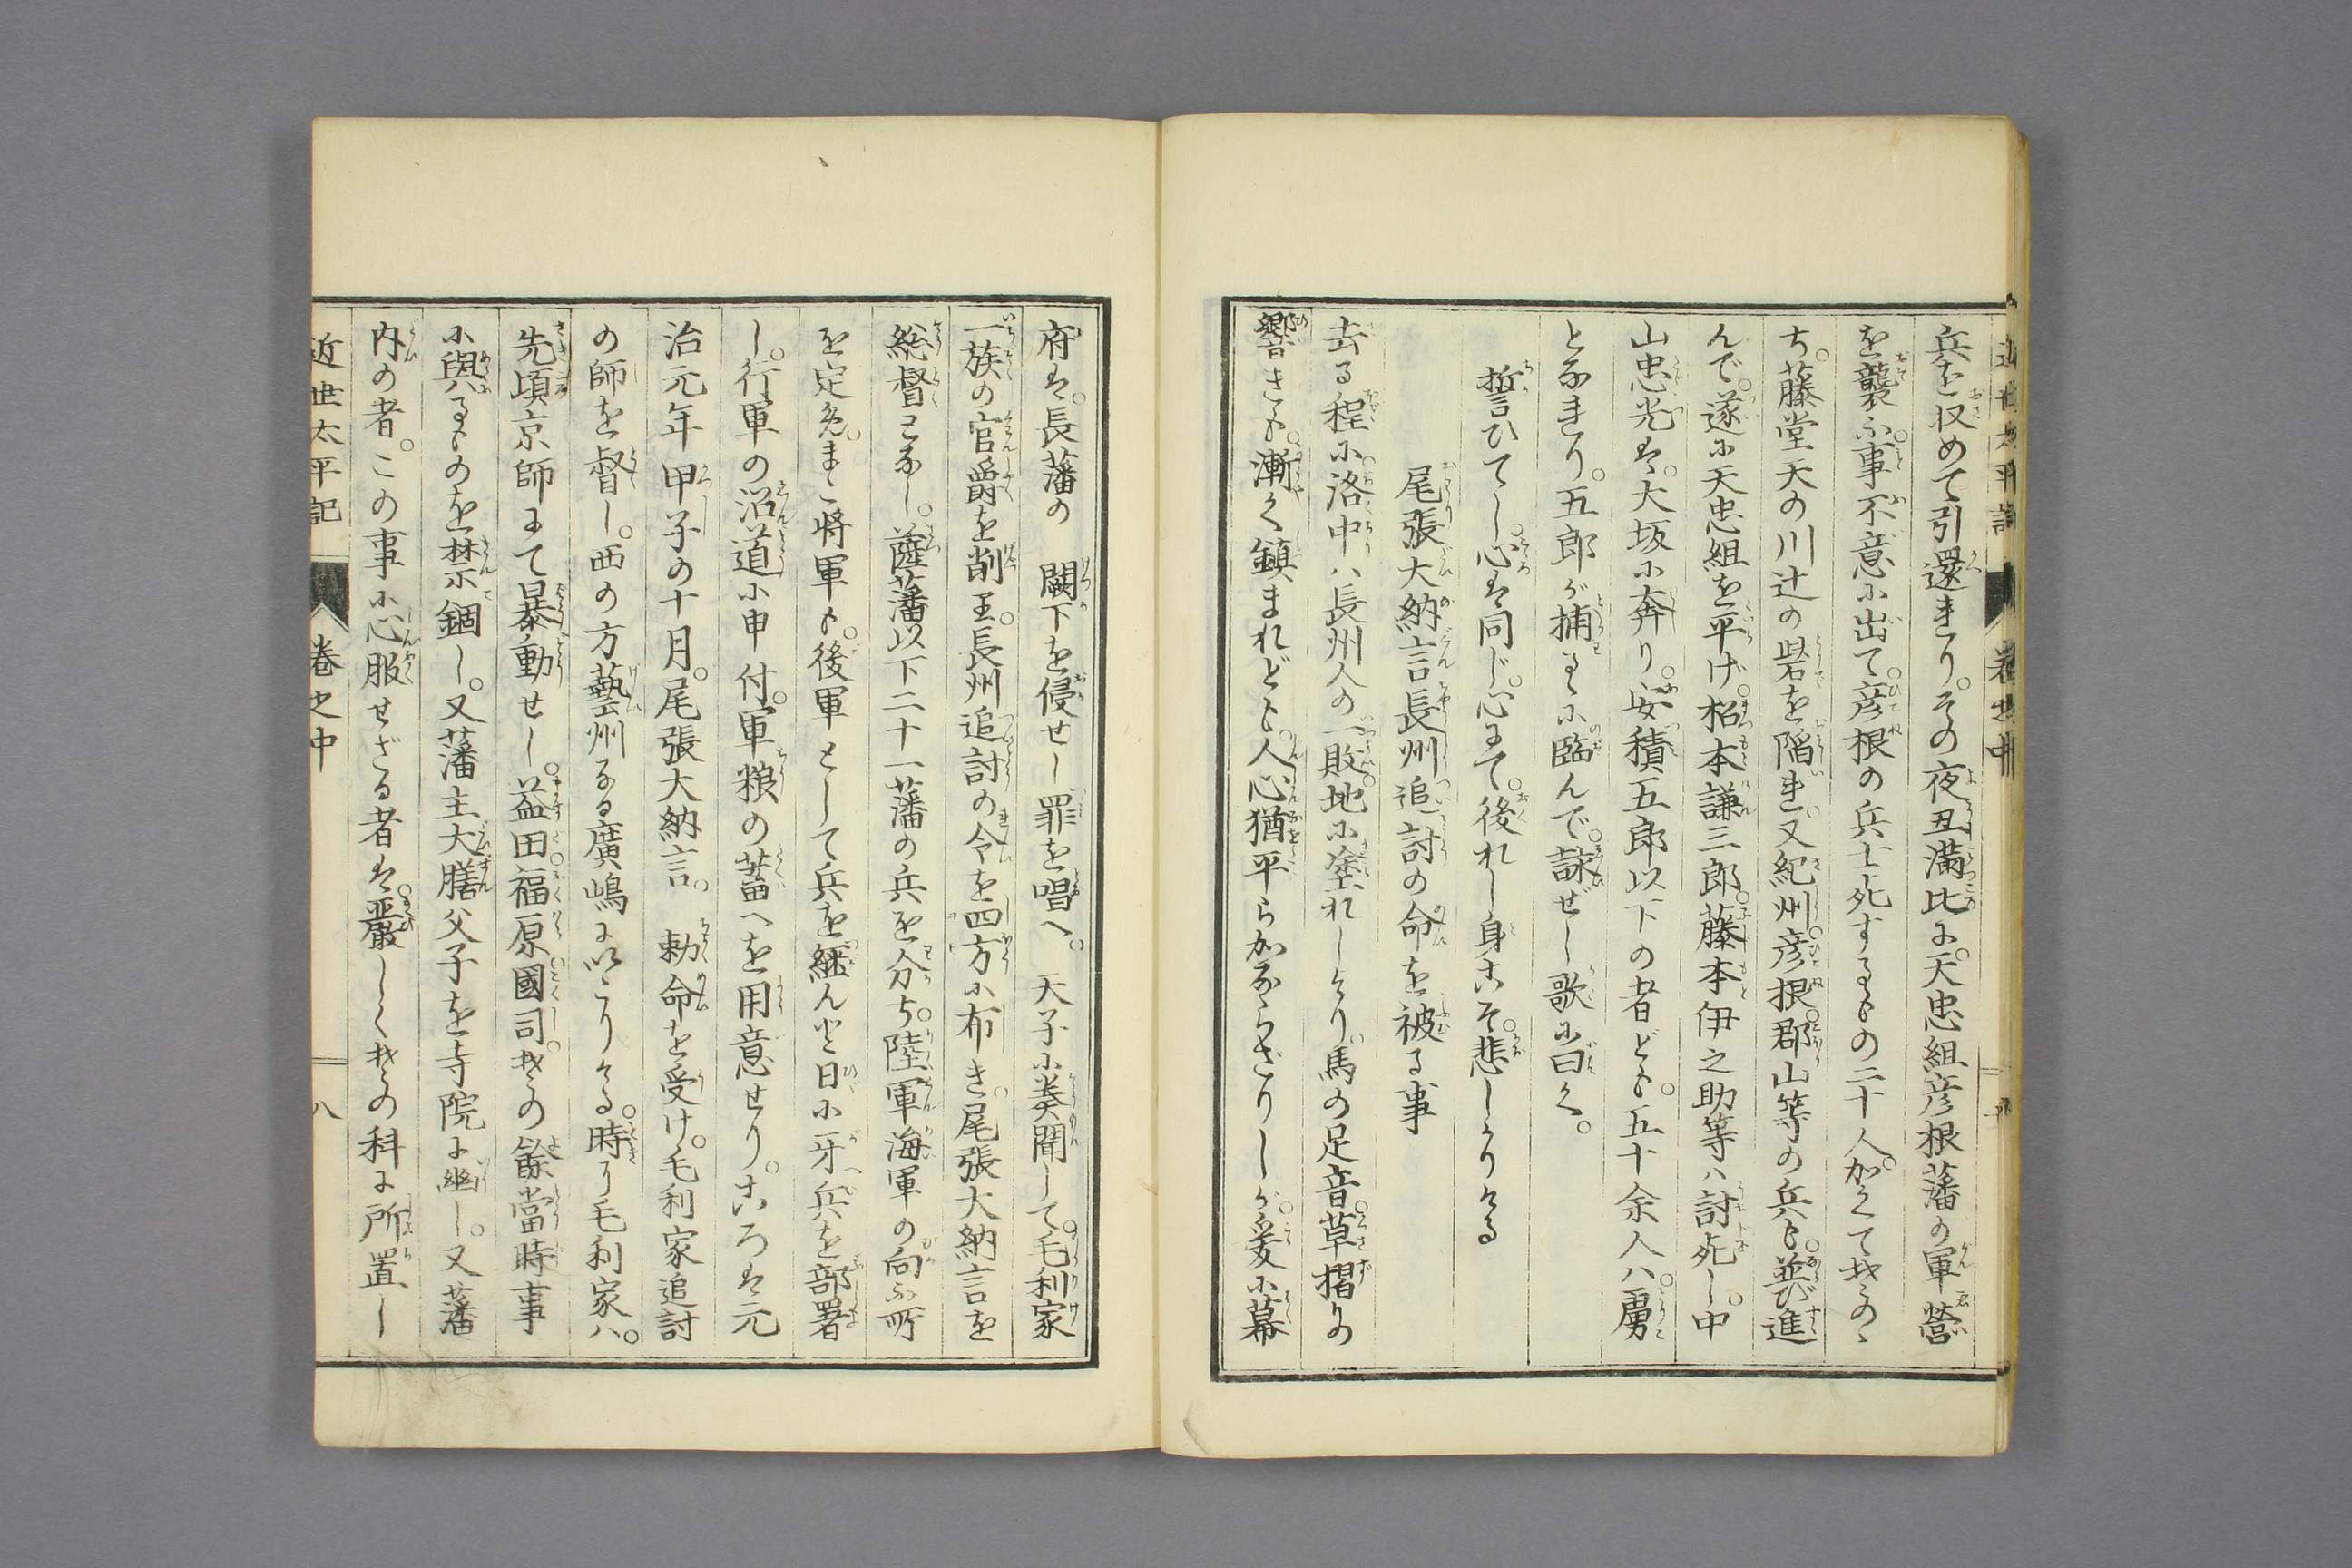 兵を収めて引還せり。その夜丑満比に。天忠組彦根藩の軍営
を襲ふ。事不意に出て。彦根の兵士死するもの二十人。加くて其の
ち。藤堂天の川辻の砦を陥れ。又紀州。彦根。郡山等の兵も。並び進
んで。遂に天忠組を平げ。松本謙三郎。藤本伊之助等ハ討死し。中
山忠光は。大坂に奔り。安積五郎以下の者ども。五十余人ハ。虜
となせり。五郎が捕るゝに臨んで。詠ぜし歌に曰く。
誓ひてし。心は同じ。心にて。後れし身こそ。悲しかりける
尾張大納言長州追討の命を被る事
去る程に。洛中ハ長州人の一敗。地に塗れしより。馬の足音。草摺りの
響きも。漸く鎮まれども。人心猶平らかならざりしが。爰に幕
府は。長藩の　闕下を侵せし罪を唱へ。　天子に奏聞して。毛利家
一族の官爵を削り。長州追討の令を四方に布き。尾張大納言を
総督となし。薩藩以下二十一藩の兵を分ち。陸軍海軍の向ふ所
を定め。まゝ将軍も。後軍として兵を継んと。日に牙兵を部署
し。行軍の沿道に申付。軍糧の蓄へを用意せり。ころは元
治元年甲子の十月。尾張大納言。　勅命を受け。毛利家追討
の師を督し。西の方藝州なる廣嶋に以たりける。時に毛利家ハ。
先頃京師にて暴動せし。益田。福原。國司。其の餘當時事
に與るものを禁錮し。又藩主大膳父子を寺院に幽し。又藩
内の者。この事に心服せざる者は。厳しく其の科に所置し
近世太平記　巻之中　八